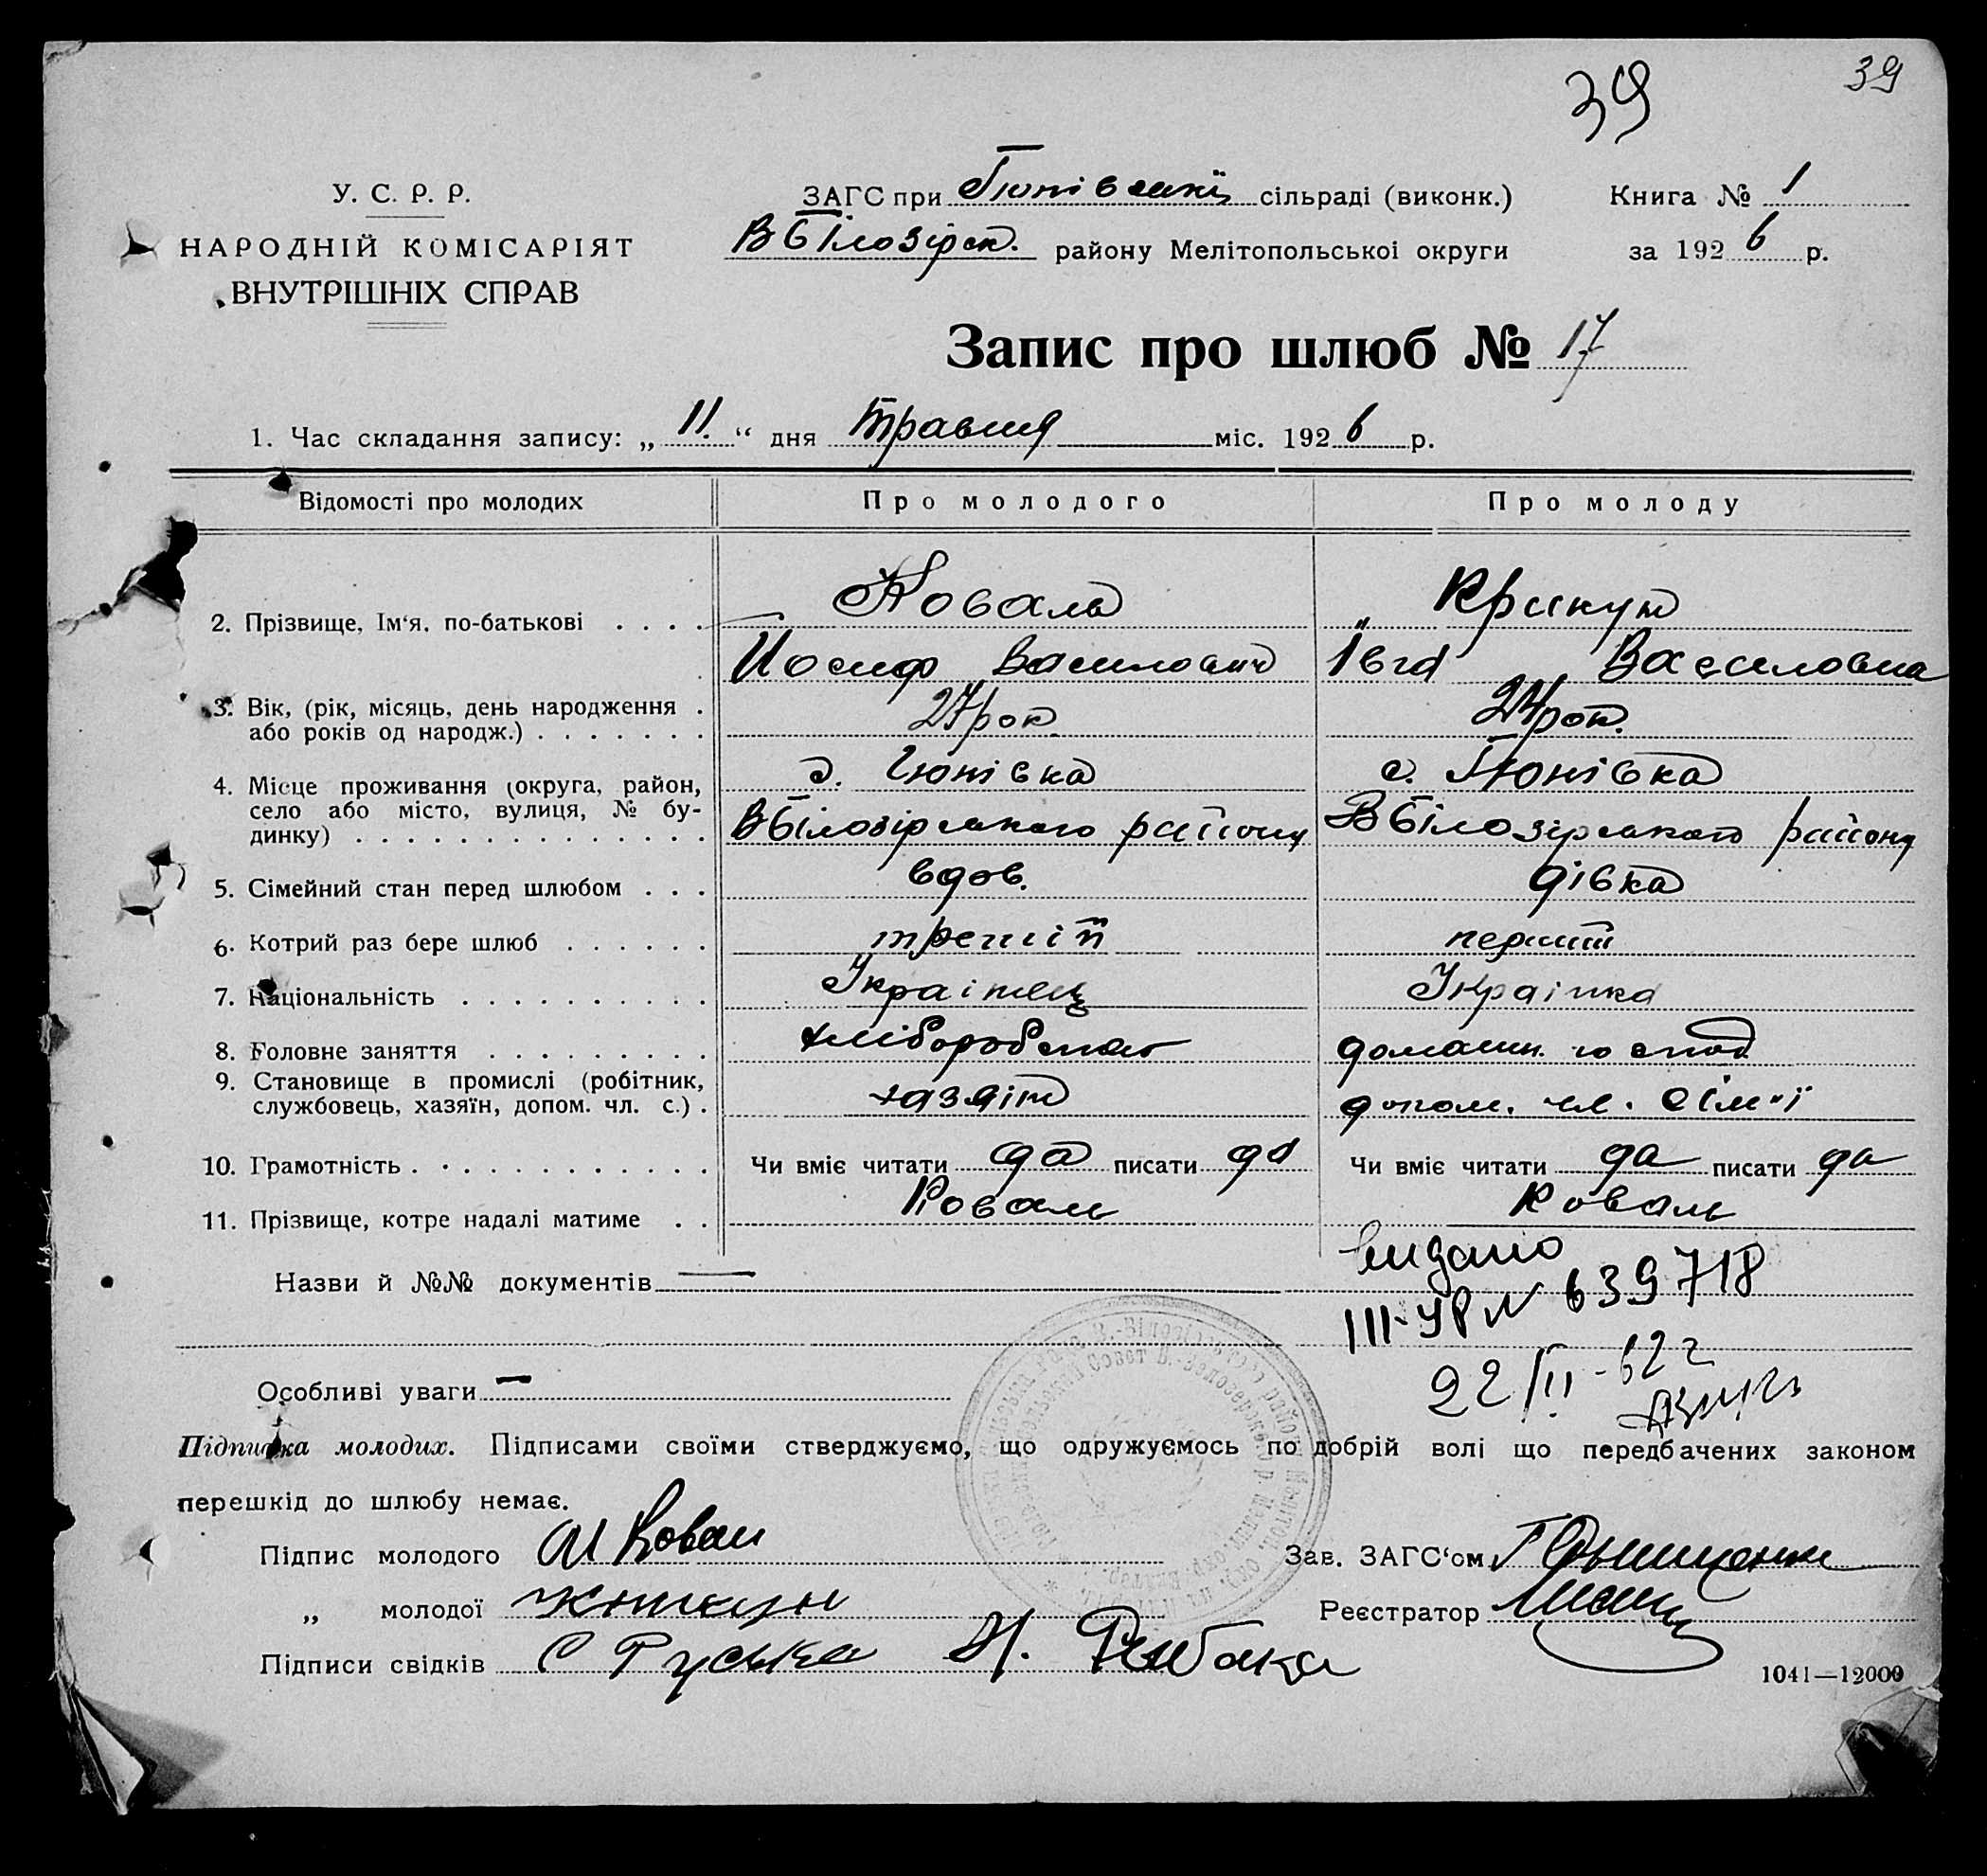 39
39
У. С. Р. Р.
НАРОДНІЙ КОМІСАРІЯТ
ВНУТРІШНІХ СПРАВ
ЗАГС при Гюнівській сільраді (виконк.)
ВБілозірськ. району Мелітопольської округи
Книга № 1
за 1926 р.
Запис про шлюб № 17
1. Час складання запису: „ 11. “ дня травня міс. 1926 р.
Відомості про молодих
Про молодого
Про молоду
2. Прізвище, Ім‘я, по-батькові . . . .
Коваль
Йосиф Василович
Крикун
Івга Василовна
3. Вік, (рік, місяць, день народження .
або років од народж.) . . . . . . .
27 рок.
24 рок.
4. Місце проживання (округа, район,
село або місто, вулиця, № бу-
динку) . . . . . . . . . . . . . .
с. Гюнівка
ВБілозірського району
с. Гюнівка
ВБілозірського району
5. Сімейний стан перед шлюбом . . .
вдов.
дівка
6. Котрий раз бере шлюб . . . . . .
третій
перший
7. Національність . . . . . . . . . .
Українец
Українка
8. Головне заняття . . . . . . . . .
хліборобство
домашн. господ.
9. Становище в промислі (робітник,
службовець, хазяїн, допом. чл. с.) .
хазяїн
допом. чл. сім"ї
10. Грамотність . . . . . . . . . . . .
Чи вміє читати да писати да
Чи вміє читати да писати да
11. Прізвище, котре надалі матиме . .
Коваль
Коваль
Назви й №№ документів
видано
III-УР N 639718
22/II-62 г
Особливі уваги —
Підписка молодих. Підписами своїми стверджуємо, що одружуємось по добрій волі що передбачених законом
перешкід до шлюбу немає.
Підпис молодого И Ковал
Зав. ЗАГС‘ом
„ молодої
Реєстратор
Підписи свідків С Гуська Н. Рибака
1041—12000